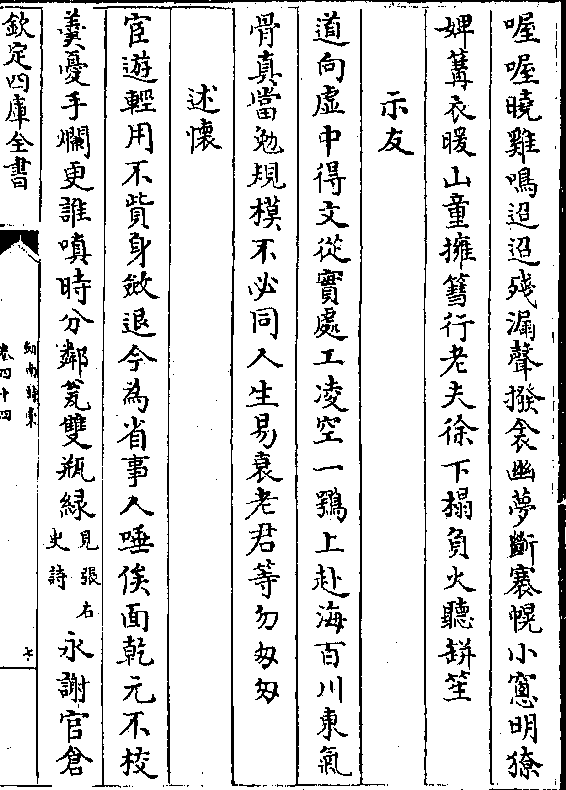 喔喔曉雞鳴迢迢殘漏聲撥衾幽夢斷褰幌小窻明獠
婢篝衣暖山童擁篲行老夫徐下榻負火聽缾笙
示友
道向虛中得文從實處工凌空一鶚上赴海百川東氣
骨真當勉規模不必同人生易衰老君等勿匆匆
述懷
宦遊輕用不貲身斂退今為省事人唾俟面乾元不校
羹憂手爛更誰嗔時分鄰瓮雙瓶緑見張右史詩永謝官倉
欽定四庫全書
劍南詩稾
卷四十四
七